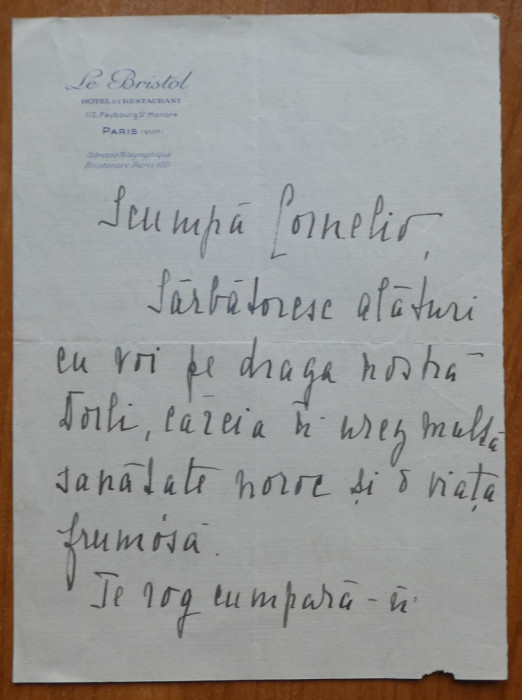 Le Bristol
HOTEL ET RESTAURANT
112, Faubourg St Honoré
PARIS (VIIIe)
Adresse Télégraphique
Scumpă Cornelio,
Sărbătoresc alături
cu voi pe draga nostră
Dorli, căreia îi urez multă
sanătate noroc și o viața
frumósă.
Te rog cumpară-îi